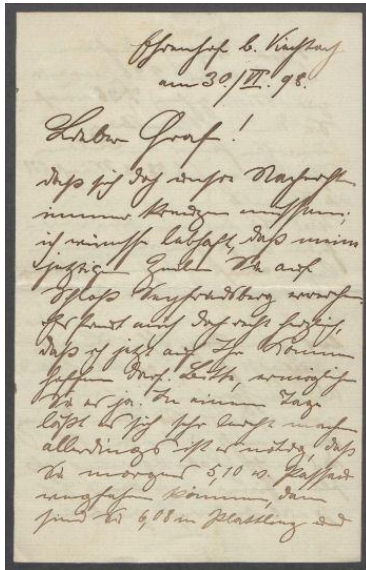 Ehrenhof b. Viechtach
am 30./VI. 98.
Lieber Graf!
daß sich doch unsre Nachrichten
immer kreuzen müssen;
ich wünsche lebhaft, daß meine
jetzigen Zeilen Sie auf
Schloß Seyfriedsberg erreichen.
Es freut mich doch recht herzlich,
daß ich jetzt auf Ihr Kommen
hoffen darf. Bitte, ermöglichen
Sie es ja. In einem Tage
läßt es sich sehr leicht machen
allerdings ist es nötig, daß
Sie morgens 5,10 v. Passau
wegfahren können, dann
sind Sie 6,08 in Plattling und